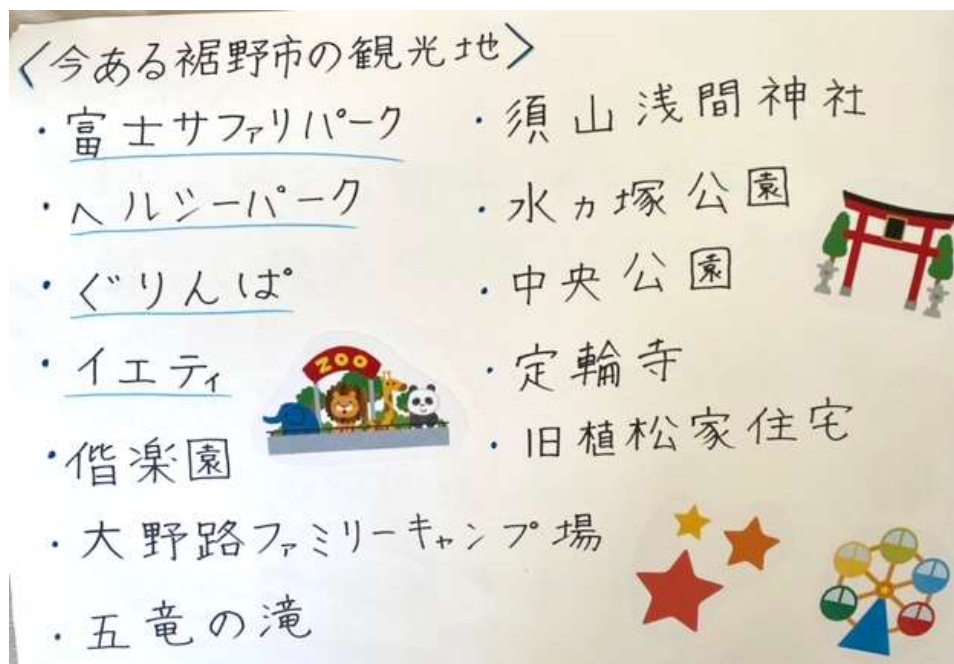 <今ある裾野市の観光地>
・富士サファリパーク
・ヘルシーパーク
・ぐりんぱ
・イエティ
・偕楽園
・大野路ファミリーキャンプ場
・五竜の滝
・須山浅間神社
・水ヵ塚公園
・中央公園
・定輪寺
・旧植松家住宅
ZOO